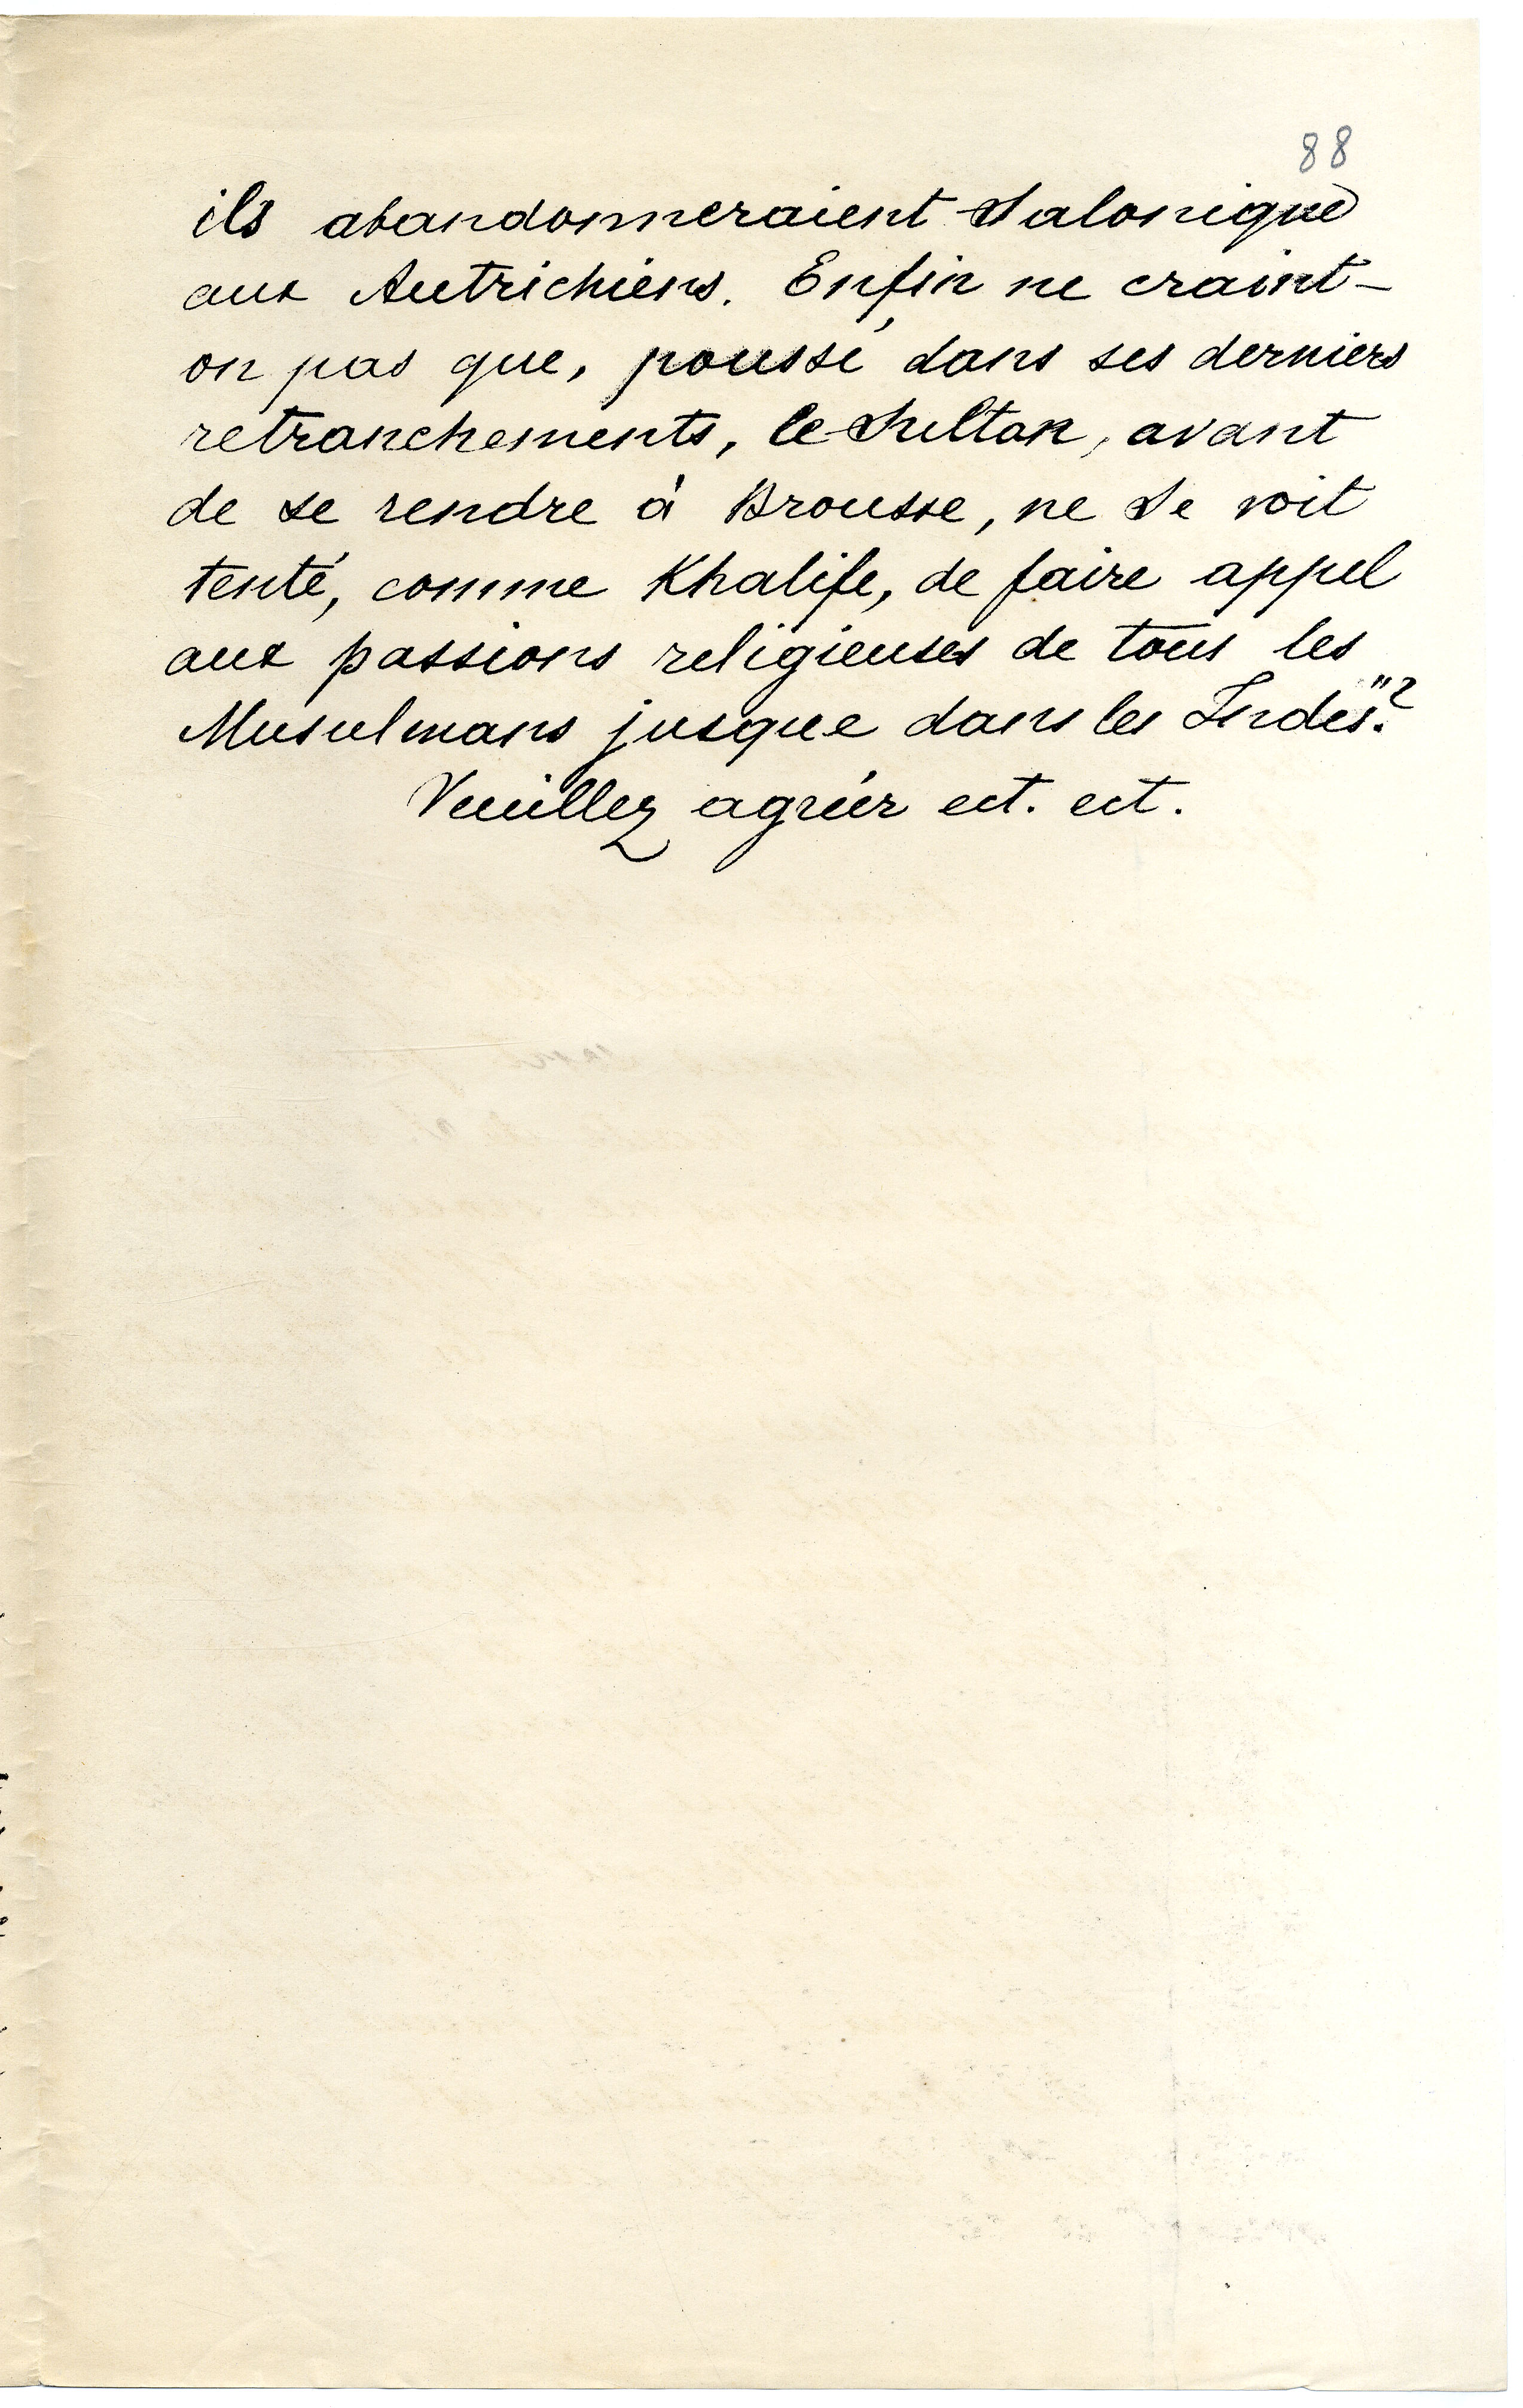 88
ils abandonneraient Salonique
aux Autrichiens. Enfin ne craint-
on pas que, poussé dans ses derniers
retranchements, le Sultan, avant
de se rendre à Brousse, ne se voit
tenté, comme Khalife, de faire appel
aux passions religieuses de tous les
Musulmans jusque dans les Indes"?
Veuillez agréér ect. ect.